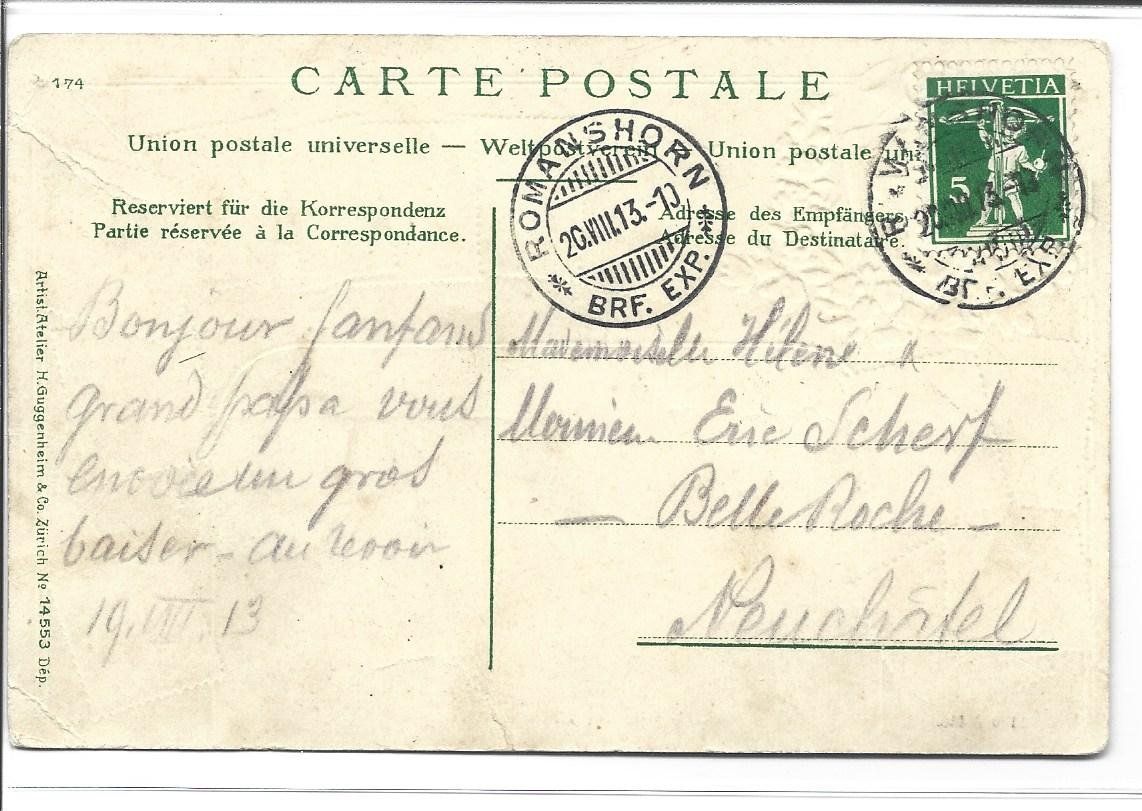 174
CARTE POSTALE
Union postale universelle — Weltpostverein — Union postale un
Reserviert für die Korrespondenz
Partie réservée à la Correspondance.
Adresse des Empfängers
Adresse du Destinataire.
HELVETIA
5
ROMANSHORN
20.VIII.13.-10
BRF. EXP.
20.VIII.13.-10
BRF. EXP.
Bonjour
grand papa vous
envoie un gros
baiser - au revoir
19.VIII.13
Mademoiselle Hélène &
Monsieur Eric Scherf
— Belle Roche —
Neuchâtel
Artist.Atelier H.Guggenheim & Co. Zürich No 14553 Dép.